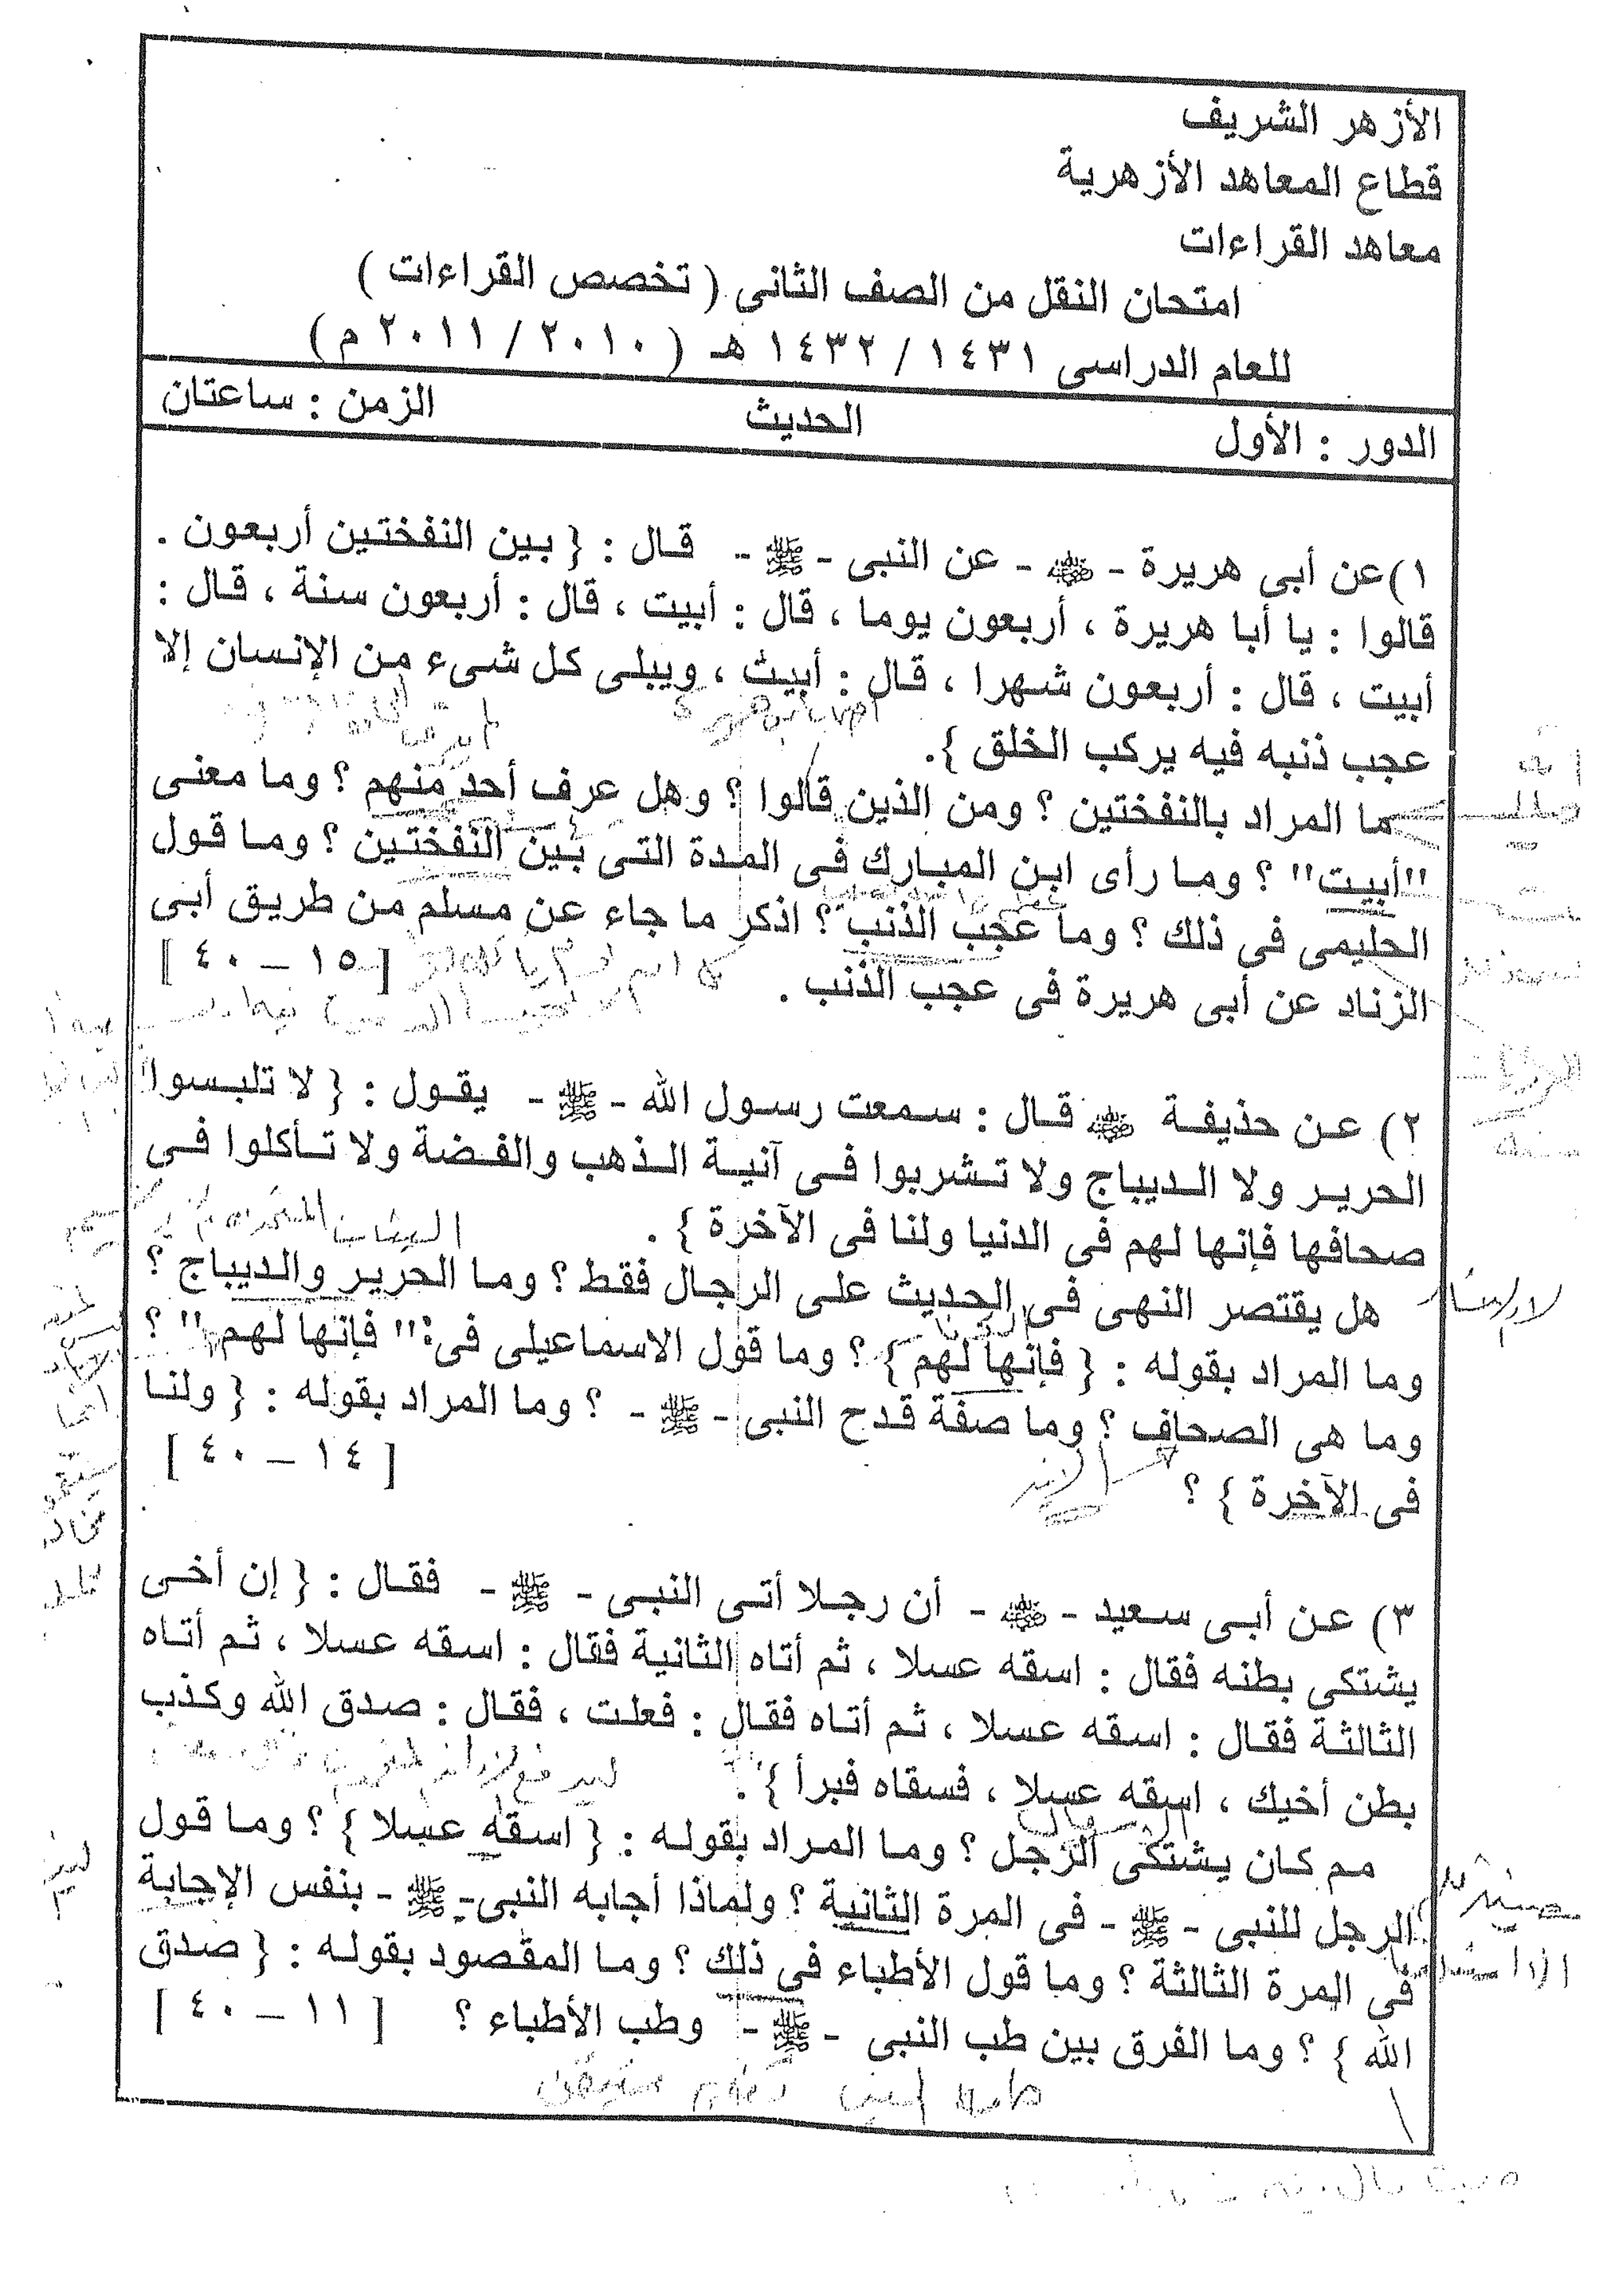 الأزهر الشريف
قطاع المعاهد الأزهرية
معاهد القراءات
امتحان النقل من الصف الثانى ( تخصص القراءات )
للعام الدراسى ١٤٣١ / ١٤٣٢ هـ ( ٢٠١٠ / ٢٠١١ م )
الدور : الأول الحديث الزمن : ساعتان
١) عن أبى هريرة - رضي الله عنه - عن النبى - ﷺ - قال : { بين النفختين أربعون .
قالوا : يا أبا هريرة ، أربعون يوما ، قال : أبيت ، قال : أربعون سنة ، قال :
أبيت ، قال : أربعون شهرا ، قال : أبيت ، ويبلى كل شىء من الإنسان إلا
عجب ذنبه فيه يركب الخلق }.
ما المراد بالنفختين ؟ ومن الذين قالوا ؟ وهل عرف أحد منهم ؟ وما معنى
"أبيت" ؟ وما رأى ابن المبارك فى المدة التى بين النفختين ؟ وما قول
الحليمى فى ذلك ؟ وما عجب الذنب ؟ اذكر ما جاء عن مسلم من طريق أبى
الزناد عن أبى هريرة فى عجب الذنب . [ ١٥ – ٤٠ ]
٢) عن حذيفة رضي الله عنه قال : سمعت رسول الله - ﷺ - يقول : { لا تلبسوا
الحرير ولا الديباج ولا تشربوا فى آنية الذهب والفضة ولا تأكلوا فى
صحافها فإنها لهم فى الدنيا ولنا فى الآخرة } .
هل يقتصر النهى فى الحديث على الرجال فقط ؟ وما الحرير والديباج ؟
وما المراد بقوله : { فإنها لهم } ؟ وما قول الاسماعيلى فى : " فإنها لهم " ؟
وما هى الصحاف ؟ وما صفة قدح النبى - ﷺ - ؟ وما المراد بقوله : { ولنا
فى الآخرة } ؟ [ ١٤ – ٤٠ ]
٣) عن أبى سعيد - رضي الله عنه - أن رجلا أتى النبى - ﷺ - فقال : { إن أخى
يشتكى بطنه فقال : اسقه عسلا ، ثم أتاه الثانية فقال : اسقه عسلا ، ثم أتاه
الثالثة فقال : اسقه عسلا ، ثم أتاه فقال : فعلت ، فقال : صدق الله وكذب
بطن أخيك ، اسقه عسلا ، فسقاه فبرأ } .
مم كان يشتكى الرجل ؟ وما المراد بقوله : { اسقه عسلا } ؟ وما قول
الرجل للنبى - ﷺ - فى المرة الثانية ؟ ولماذا أجابه النبى - ﷺ - بنفس الإجابة
فى المرة الثالثة ؟ وما قول الأطباء فى ذلك ؟ وما المقصود بقوله : { صدق
الله } ؟ وما الفرق بين طب النبى - ﷺ - وطب الأطباء ؟ [ ١١ – ٤٠ ]